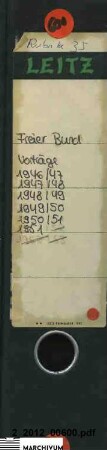 LEITZ
Freier Bund
Vorträge
1946/47
1947/48
1948/49
1949/50
1950/51
1951
2_2012_00600.pdf
MARCHIVUM